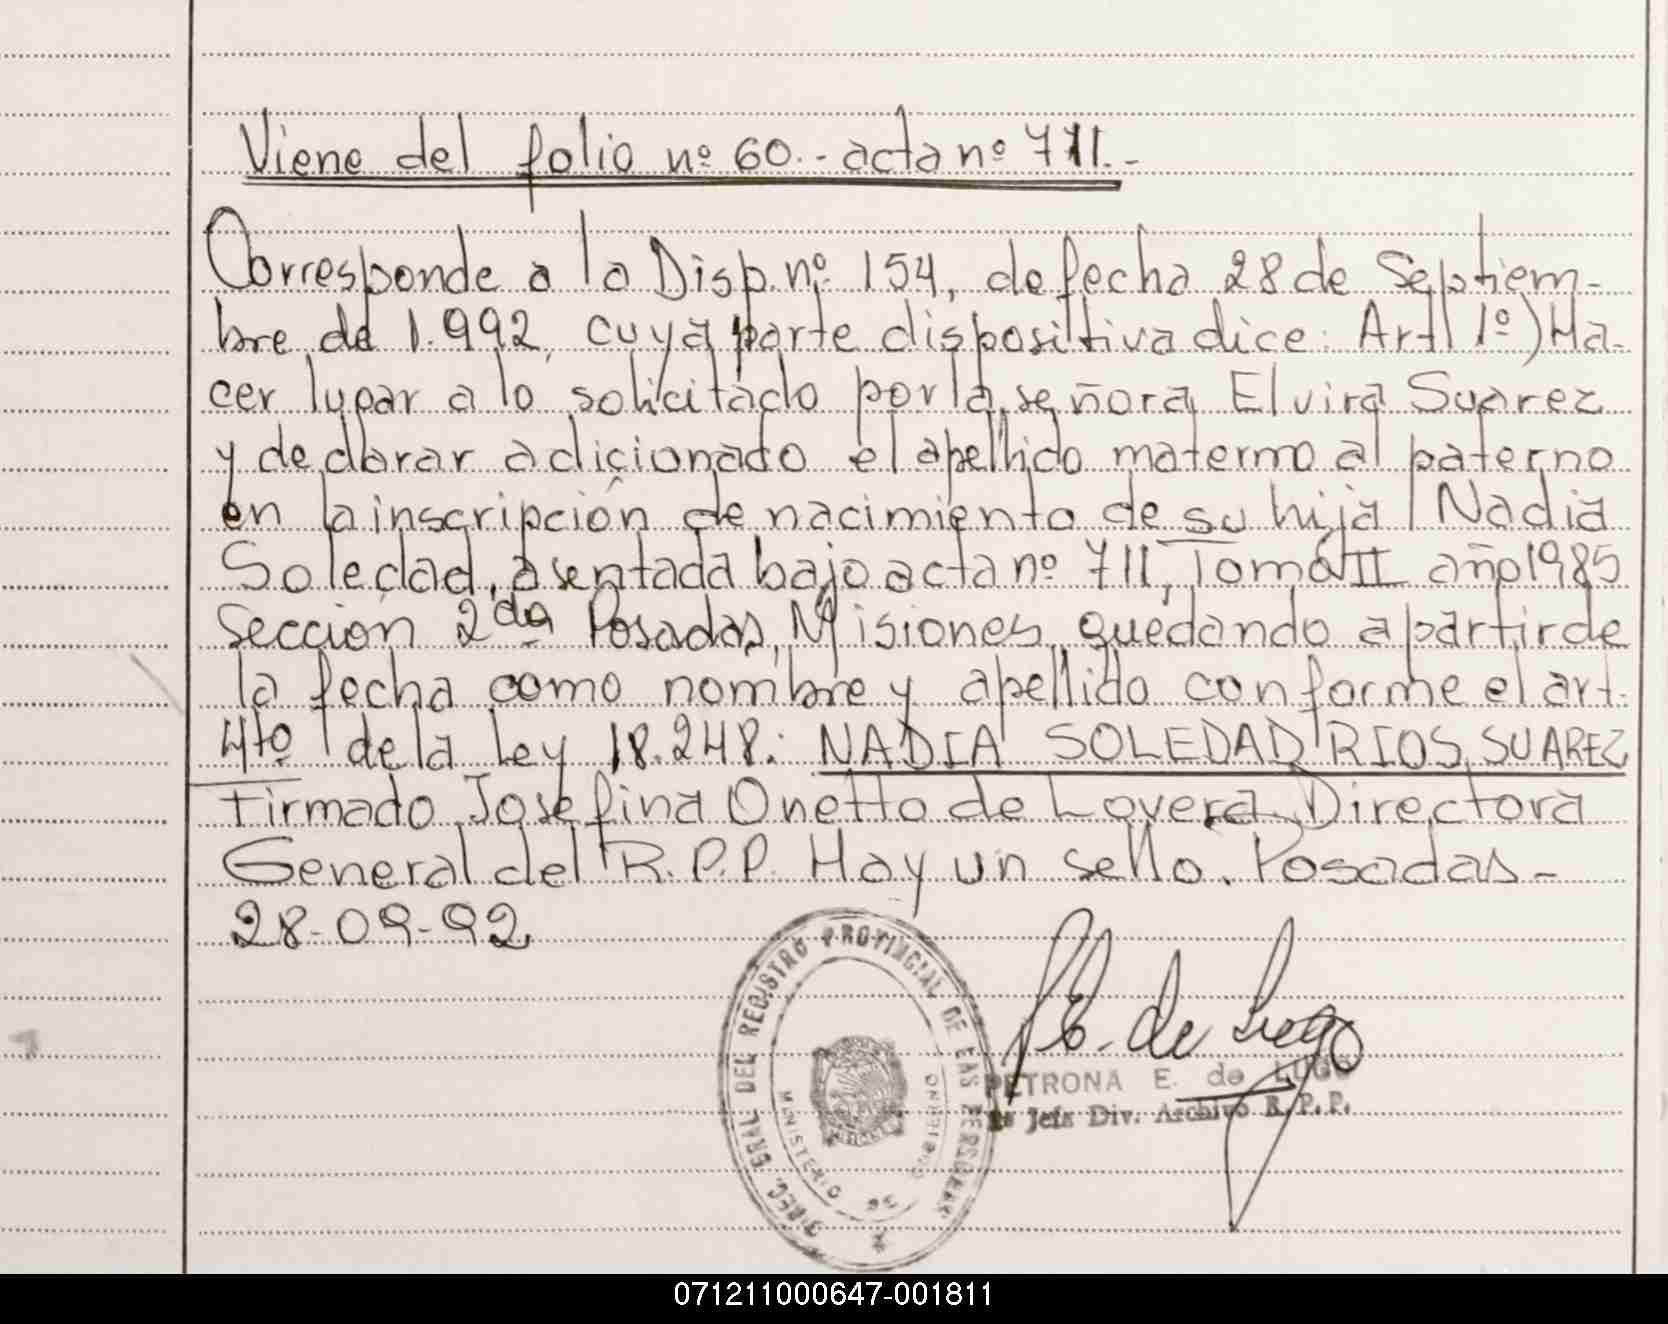 Viene del folio nº 60.- acta nº 711.-
Corresponde a la Disp. nº 154, de fecha 28 de Septiem-
bre de 1.992, cuya parte dispositiva dice: Art 1º) Ha-
cer lugar a lo solicitado por la señora Elvira Suarez
y declarar adicionado el apellido materno al paterno
en la inscripción de nacimiento de su hija Nadia
Soledad, asentada bajo acta nº 711, Tomo II año 1985
Sección 2da Posadas, Misiones, quedando a partir de
la fecha como nombre y apellido conforme el art.
4to de la Ley 18.248: NADIA SOLEDAD RIOS SUAREZ
Firmado Josefina Onetto de Lovera Directora
General del R.P.P. Hay un sello. Posadas-
28-09-92
DIREC. GRAL DEL REGISTRO PROVINCIAL DE LAS PERSONAS
MINISTERIO DE GOBIERNO
P.E. de Lugo
PETRONA E. de LUGO
Jefa Div. Archivo R.P.P.
071211000647-001811